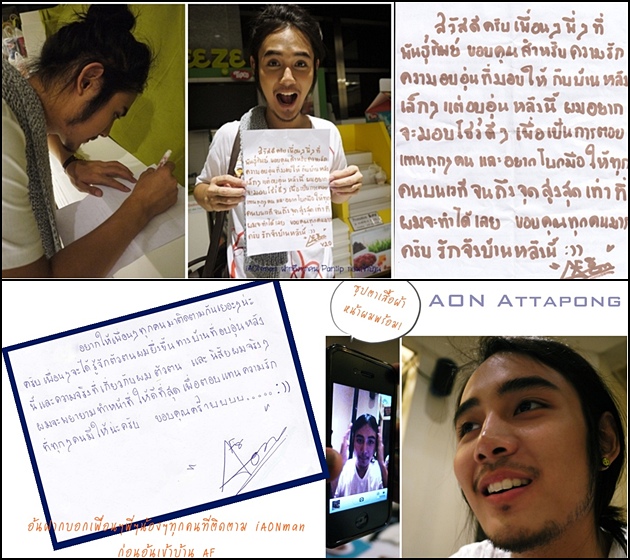 สวัสดีครับ เพื่อนๆ พี่ๆ ที่
พันธุ์ทิพย์ ขอบคุณ สำหรับ ความรัก
ความอบอุ่น ที่มอบให้ กับบ้าน หลัง
เล็กๆ แต่อบอุ่น หลังนี้ ผมอยาก
จะมอบโชว์ดีๆ เพื่อเป็นการตอบ
แทนทุกๆ คน และอยากโบกมือให้ทุก
คนบนเวที จนถึงจุดสูงสุด เท่าที่
ผมจะทำได้เลย ขอบคุณทุกคนมาก
ครับ รักจังบ้านหลังนี้ :))
อยากให้เพื่อนๆ ทุกคน มาติดตามกันเยอะๆ นะ
ครับ เพื่อนๆ จะได้ รู้จักตัวตนผมยิ่งขึ้น ทางบ้านที่อบอุ่น หลัง
นี้ และความจริงที่เกี่ยวกับผม ตัวตน และ นิสัย ผมจริงๆ
ผมจะพยายามทำหน้าที่ ให้ดีที่สุด เพื่อตอบแทน ความรัก
ที่ทุกๆ คนมีให้นะครับ ขอบคุณคร้าบบบบ.....:))
AF8
Aon
ซุปตาเสื้อผ้า
หน้าผมพร้อม!
AON ATTAPONG
อ้นฝากบอกเพื่อนๆพี่ๆน้องๆทุกคนที่ติดตาม iAONman
ก่อนอ้นเข้าบ้าน AF